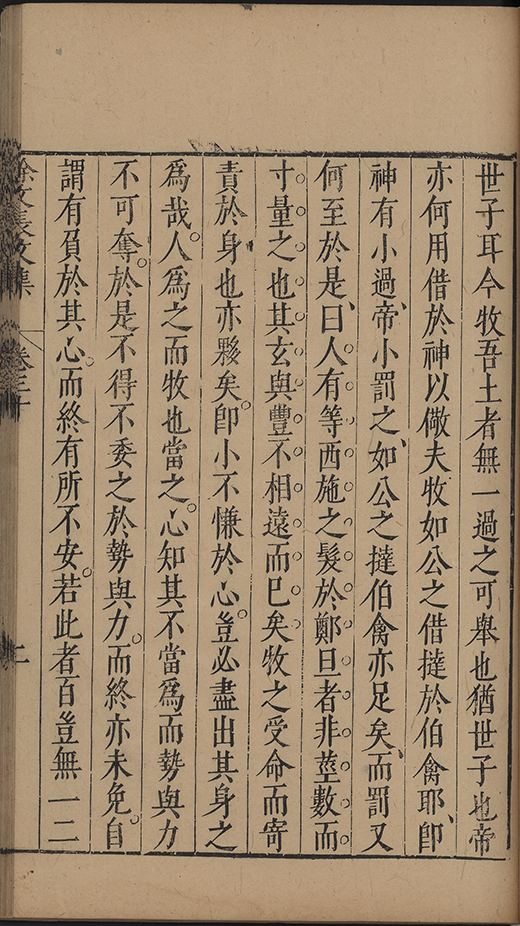 世子耳今牧吾土者無一過之可舉也猶世子也帝
亦何用借於神以儆夫牧如公之借撻於伯禽耶即
神有小過帝小罰之如公之撻伯禽亦足矣而罰又
何至於是曰人有等西施之髮於鄭旦者非莖數而
寸量之也其玄與豐不相遠而已矣牧之受命而寄
責於身也亦夥矣即小不慊於心豈必盡出其身之
爲哉人爲之而牧也當之心知其不當爲而勢與力
不可奪於是不得不委之於勢與力而終亦未免自
謂有負於其心而終有所不安若此者百豈無一二
徐文長文集
卷三十
二